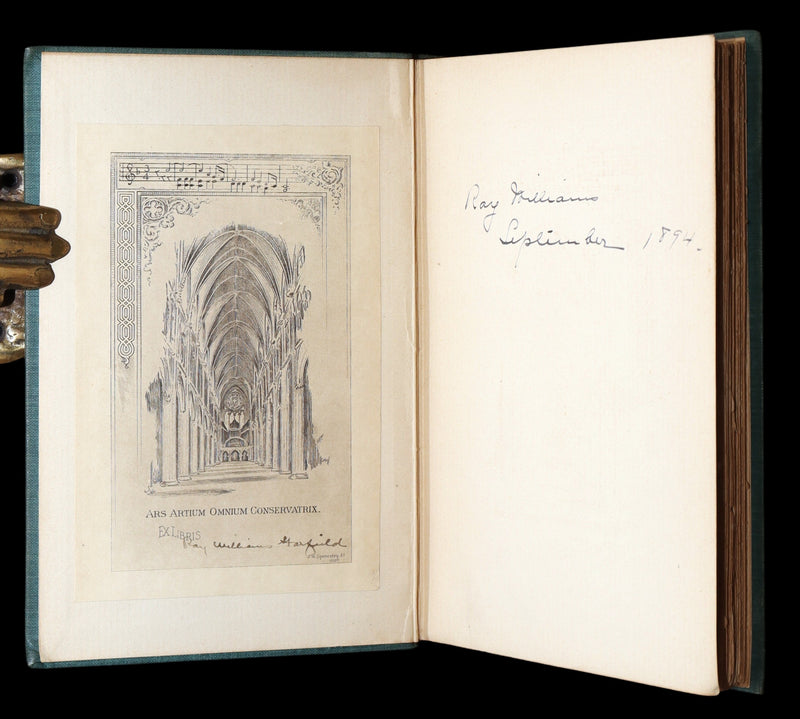 ARS ARTIUM OMNIUM CONSERVATRIX.
EX LIBRIS
Ray Williams Garfield
Ray Williams
September 1894.